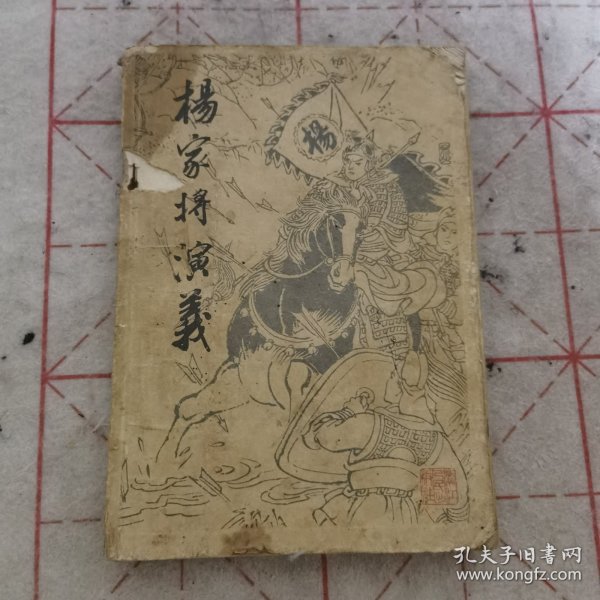 楊家將演義
楊
孔夫子旧書网
www.kongfz.com